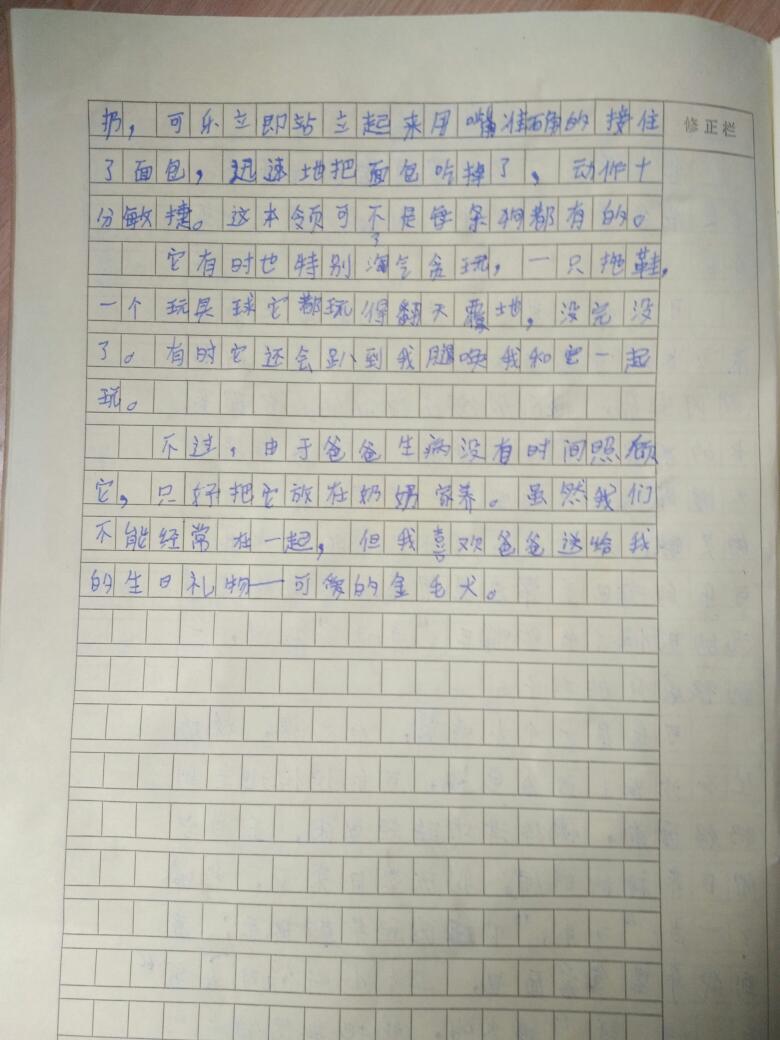 扔，可乐立即站立起来用嘴准确的接住
修正栏
了面包，迅速地把面包吃掉了，动作十
分敏捷。这本领可不是每条狗都有的。
它有时也特别淘气贪玩，一只拖鞋，
一个玩具球它都玩得翻天覆地，没完没
了。有时它还会趴到我腿唤我和它一起
玩。
不过，由于爸爸生病没有时间照顾
它，只好把它放在奶奶家养。虽然我们
不能经常在一起，但我喜欢爸爸送给我
的生日礼物——可爱的金毛犬。